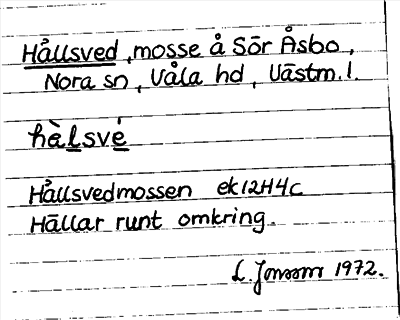 Hållsved, mosse å Sör Åsbo,
Nora sn, Våla hd, Västm. l.
hè̀lsvé
Hållsvedmossen ek 12H4c
Hällar runt omkring.
L. Jonsson 1972.